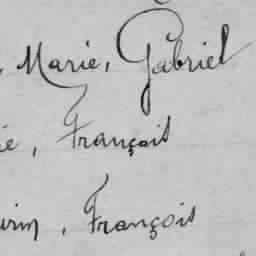 Marie, Gabriel
ie, François
urin, François